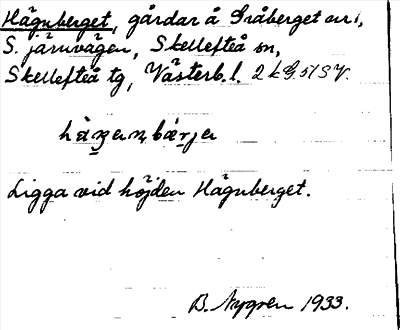 Hägnberget, gårdar å Gråberget nr 1,
S. järnvägen, Skellefteå sn,
Skellefteå tg, Västerb. l. 2 kG 51 SV.
Ligga vid höjden Hägnberget.
B. Nygren 1933.